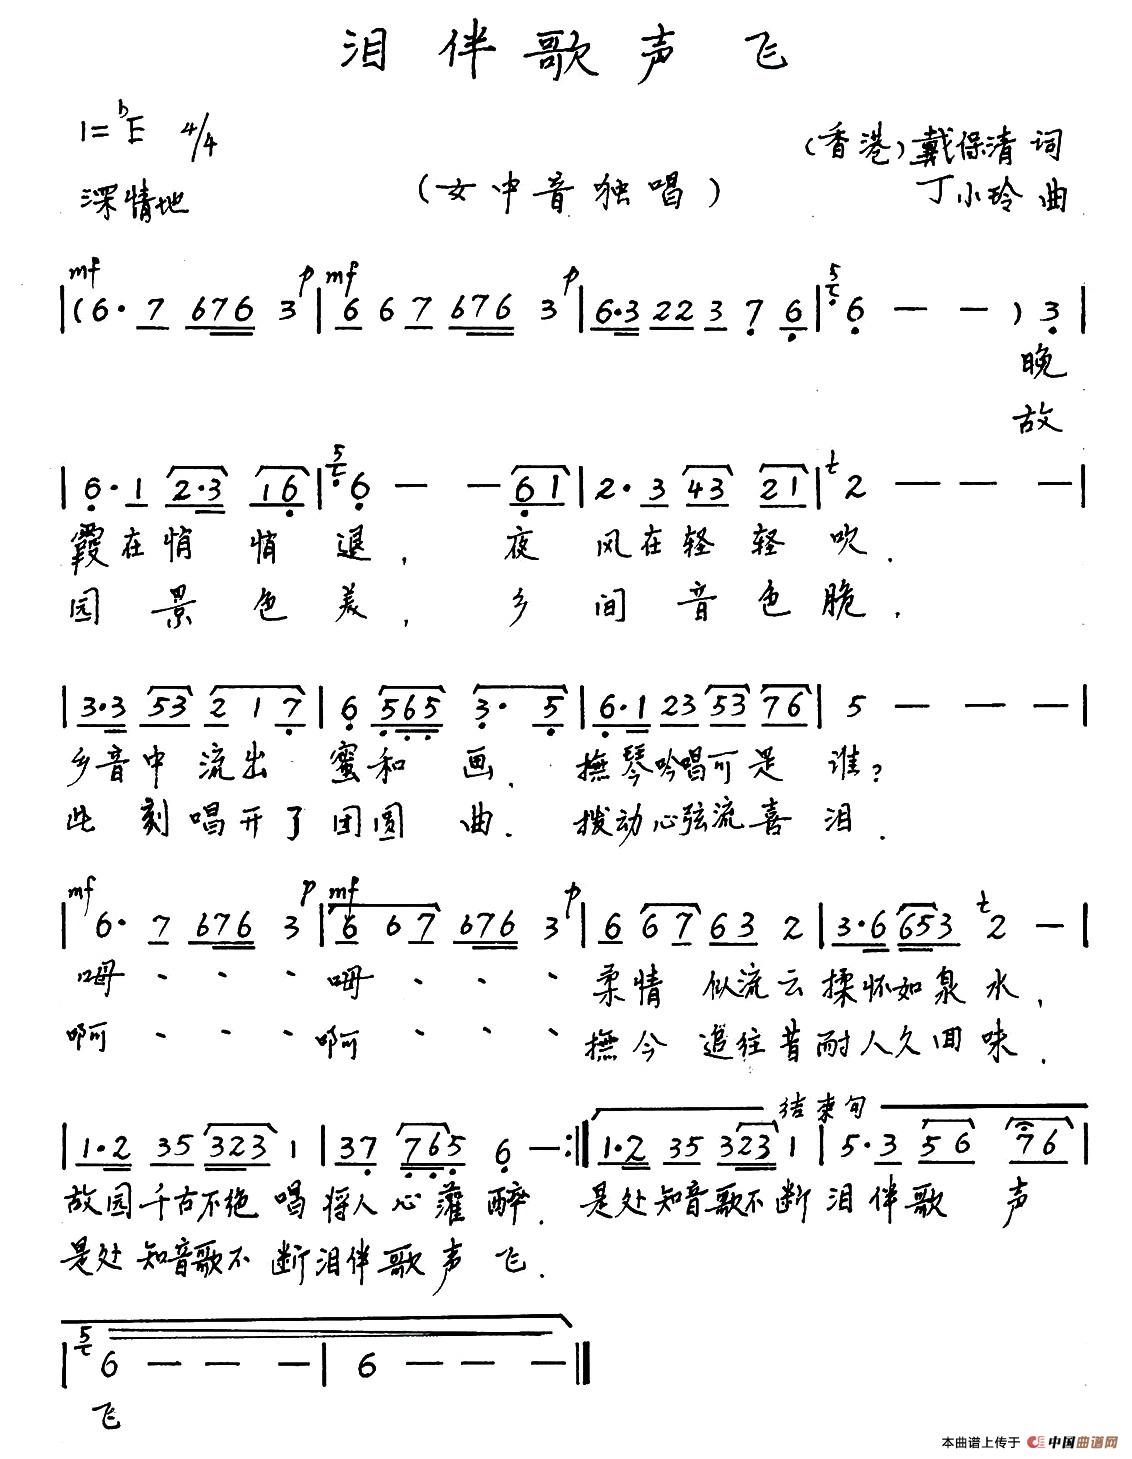 泪伴歌声飞
1=♭E 4/4
(香港)戴保清 词
深情地
(女中音独唱)
丁小玲 曲
mf p mf p
|(6· 7 676 3|6 6 7 676 3|6·3 223 7 6|5 6 — — ) 3|
晚
故
|6·1 2·3 16|5 6 — — 61|2·3 43 21|t 2 — — —|
霞在悄悄退，夜风在轻轻吹．
园景色美，乡间音色脆．
|3·3 53 2 1 7|6 565 3· 5|6·1 23 53 76|5 — — —|
乡音中流出蜜和画．撫琴吟唱可是谁？
此刻唱开了团圆曲．拨动心弦流喜泪．
mf p mf p
|6· 7 676 3|6 6 7 676 3|6 6 7 63 2|3·6 653 t 2 —|
呣、、、呣、、、柔情似流云揉怀如泉水，
啊、、、啊、、、撫今追往昔耐人久回味．
结束句
|1·2 35 323 1|37 765 6 —:||1·2 35 323 1|5·3 56 76|
故园千古不绝唱将人心灌醉．是处知音歌不断泪伴歌声
是处知音歌不断泪伴歌声飞．
|5 6 — — —|6 — — —||
飞
本曲谱上传于 中国曲谱网